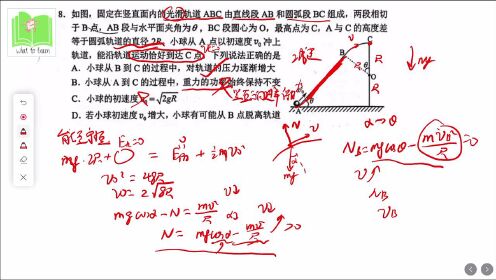 what to learn
8. 如图，固定在竖直面内的光滑轨道 ABC 由直线段 AB 和圆弧段 BC 组成，两段相切
于 B 点，AB 段与水平面夹角为 θ，BC 段圆心为 O，最高点为 C，A 与 C 的高度差
等于圆弧轨道的直径 2R。小球从 A 点以初速度 v₀ 冲上
轨道，能沿轨道运动恰好到达 C 点，下列说法正确的是
A．小球从 B 到 C 的过程中，对轨道的压力逐渐增大
B．小球从 A 到 C 的过程中，重力的功率始终保持不变
C．小球的初速度 v₀=√2gR
D．若小球初速度 v₀ 增大，小球有可能从 B 点脱离轨道
A
B
R
θ
mg·2R+O = + ½mv₀²
v₀²=4gR
mgcosα-N=mv²/R
N=mgcosα-mv²/R >0
α→θ
N_B=mgcosθ-mv_B²/R=0
N
v
mg
v↑
N_B
v_B